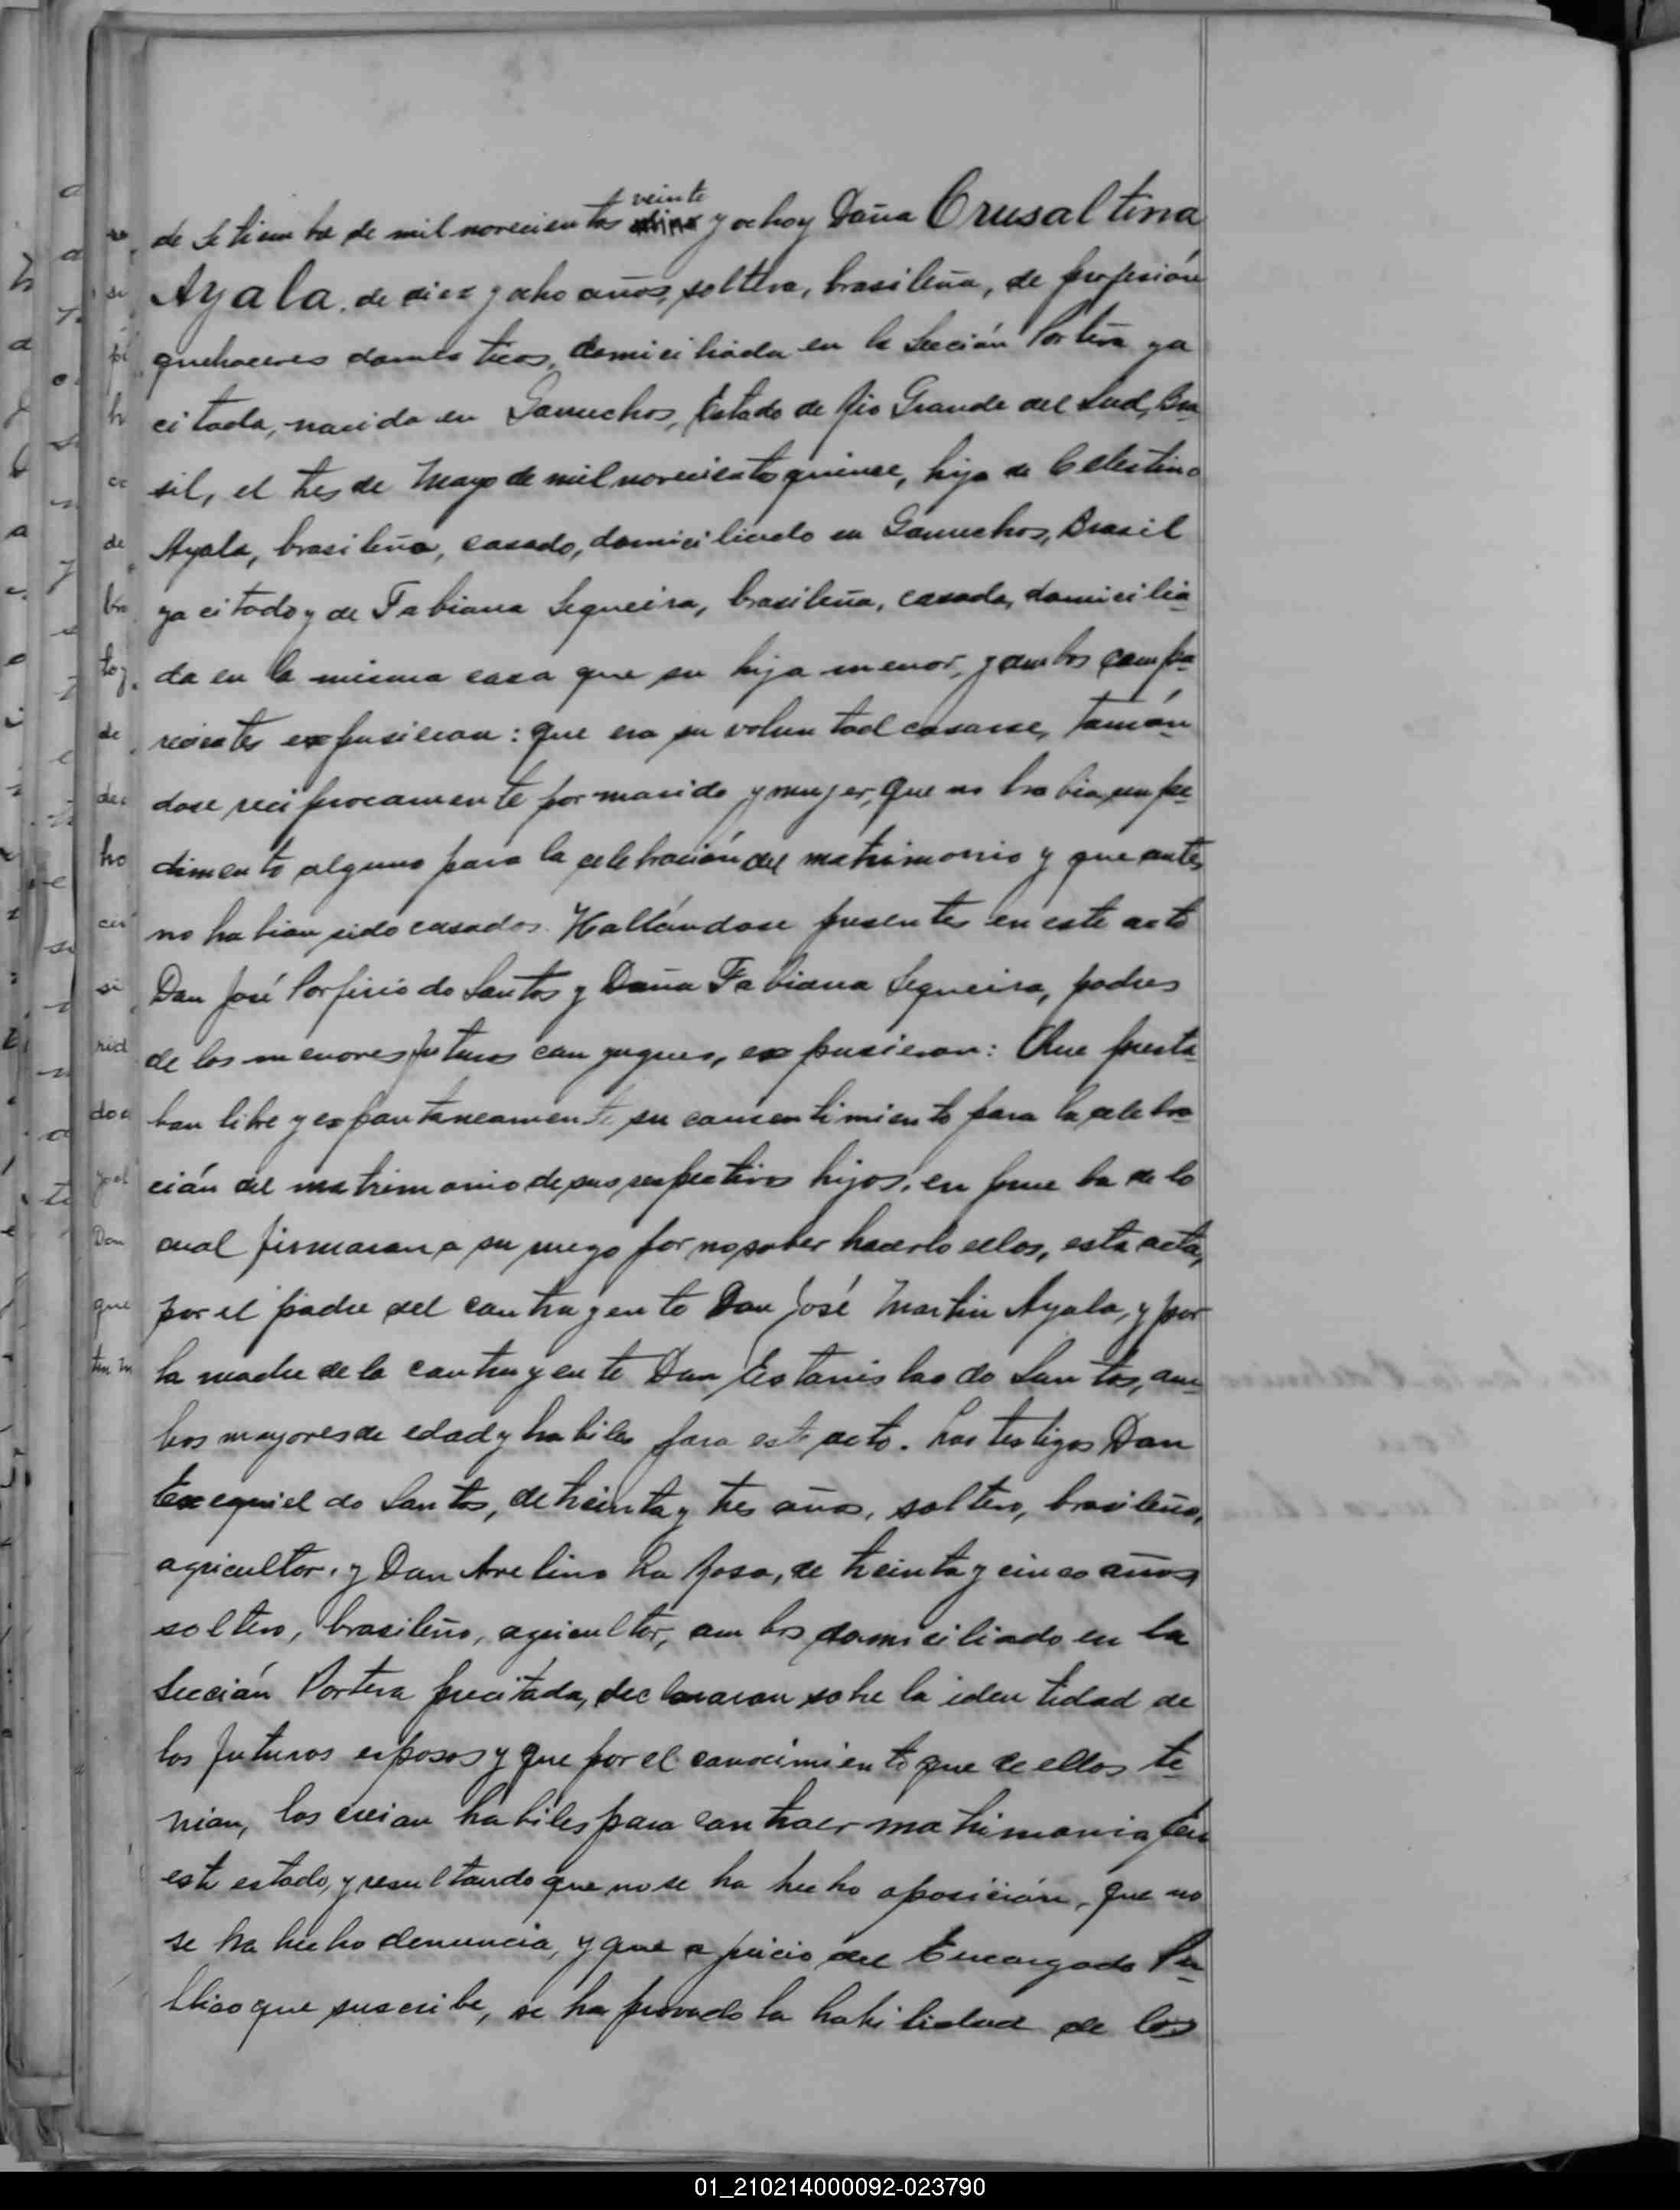 veinte
de Setiembre de mil novecientos y ocho y Doña Crusaltina
Ayala, de diez y ocho años, soltera, brasileña, de profesión
quehaceres domesticos, domiciliada en la Sección Portera ya
citada, nacida en Garruchos, Estado de Rio Grande del Sud, Bra-
sil, el tres de Mayo de mil novecientos quince, hija de Celestino
Ayala, brasileño, casado, domiciliado en Garruchos, Brasil
ya citado y de Fabiana Sequeira, brasileña, casada, domicilia-
da en la misma casa que su hija menor, y ambos compa-
recientes expusieron: que era su voluntad casarse, tomán-
dose reciprocamente por marido y mujer, que no habia impe-
dimento alguno para la celebración del matrimonio y que antes
no habian sido casados. Hallándose presentes en este acto
Don José Porfirio do Santos y Doña Fabiana Sequeira, padres
de los menores futuros conyugues, expusieron: Que presta-
ban libre y expontaneamente su consentimiento para la celebra-
ción del matrimonio de sus respectivos hijos, en prueba de lo
cual firmaran a su ruego por no saber hacerlo ellos, esta acta,
por el padre del contrayente Don José Martin Ayala, y por
la madre de la contrayente Don Estanislao do Santos, am-
bos mayores de edad y habiles para este acto. Los testigos Don
Exequiel do Santos, de treinta y tres años, soltero, brasileño,
agricultor, y Don Avelino La Rosa, de treinta y cinco años,
soltero, brasileño, agricultor, ambos domiciliado en la
Sección Portera precitada, declararon sobre la identidad de
los futuros esposos y que por el conocimiento que de ellos te-
nian, los creian habiles para contraer matrimonio, en
este estado, y resultando que no se ha hecho oposición, que no
se ha hecho denuncia, y que a juicio del Encargado Pu-
blico que suscribe, se ha provado la habilidad de los
01_210214000092-023790